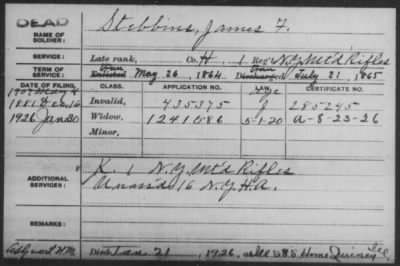 DEAD
NAME OF SOLDIER: Stebbins, James F.
SERVICE: Late rank, Co. H, 1 Reg't N.Y. Mt'd Rifles
TERM OF SERVICE: Enlisted May 26, 1864 Discharged July 21, 1865
DATE OF FILING. CLASS. APPLICATION NO. LAW.
1881 Dec 16 Invalid, 435375 285245
1926 Jan 30 Widow, 1241686 5-1-20 A-8-23-26
Minor,
ADDITIONAL SERVICES: K. 1 N.Y. Mt'd Rifles
Unass'd 16 N.Y.H.A.
REMARKS:
Died Jan. 21, 1926, at Home Quincy Ill.